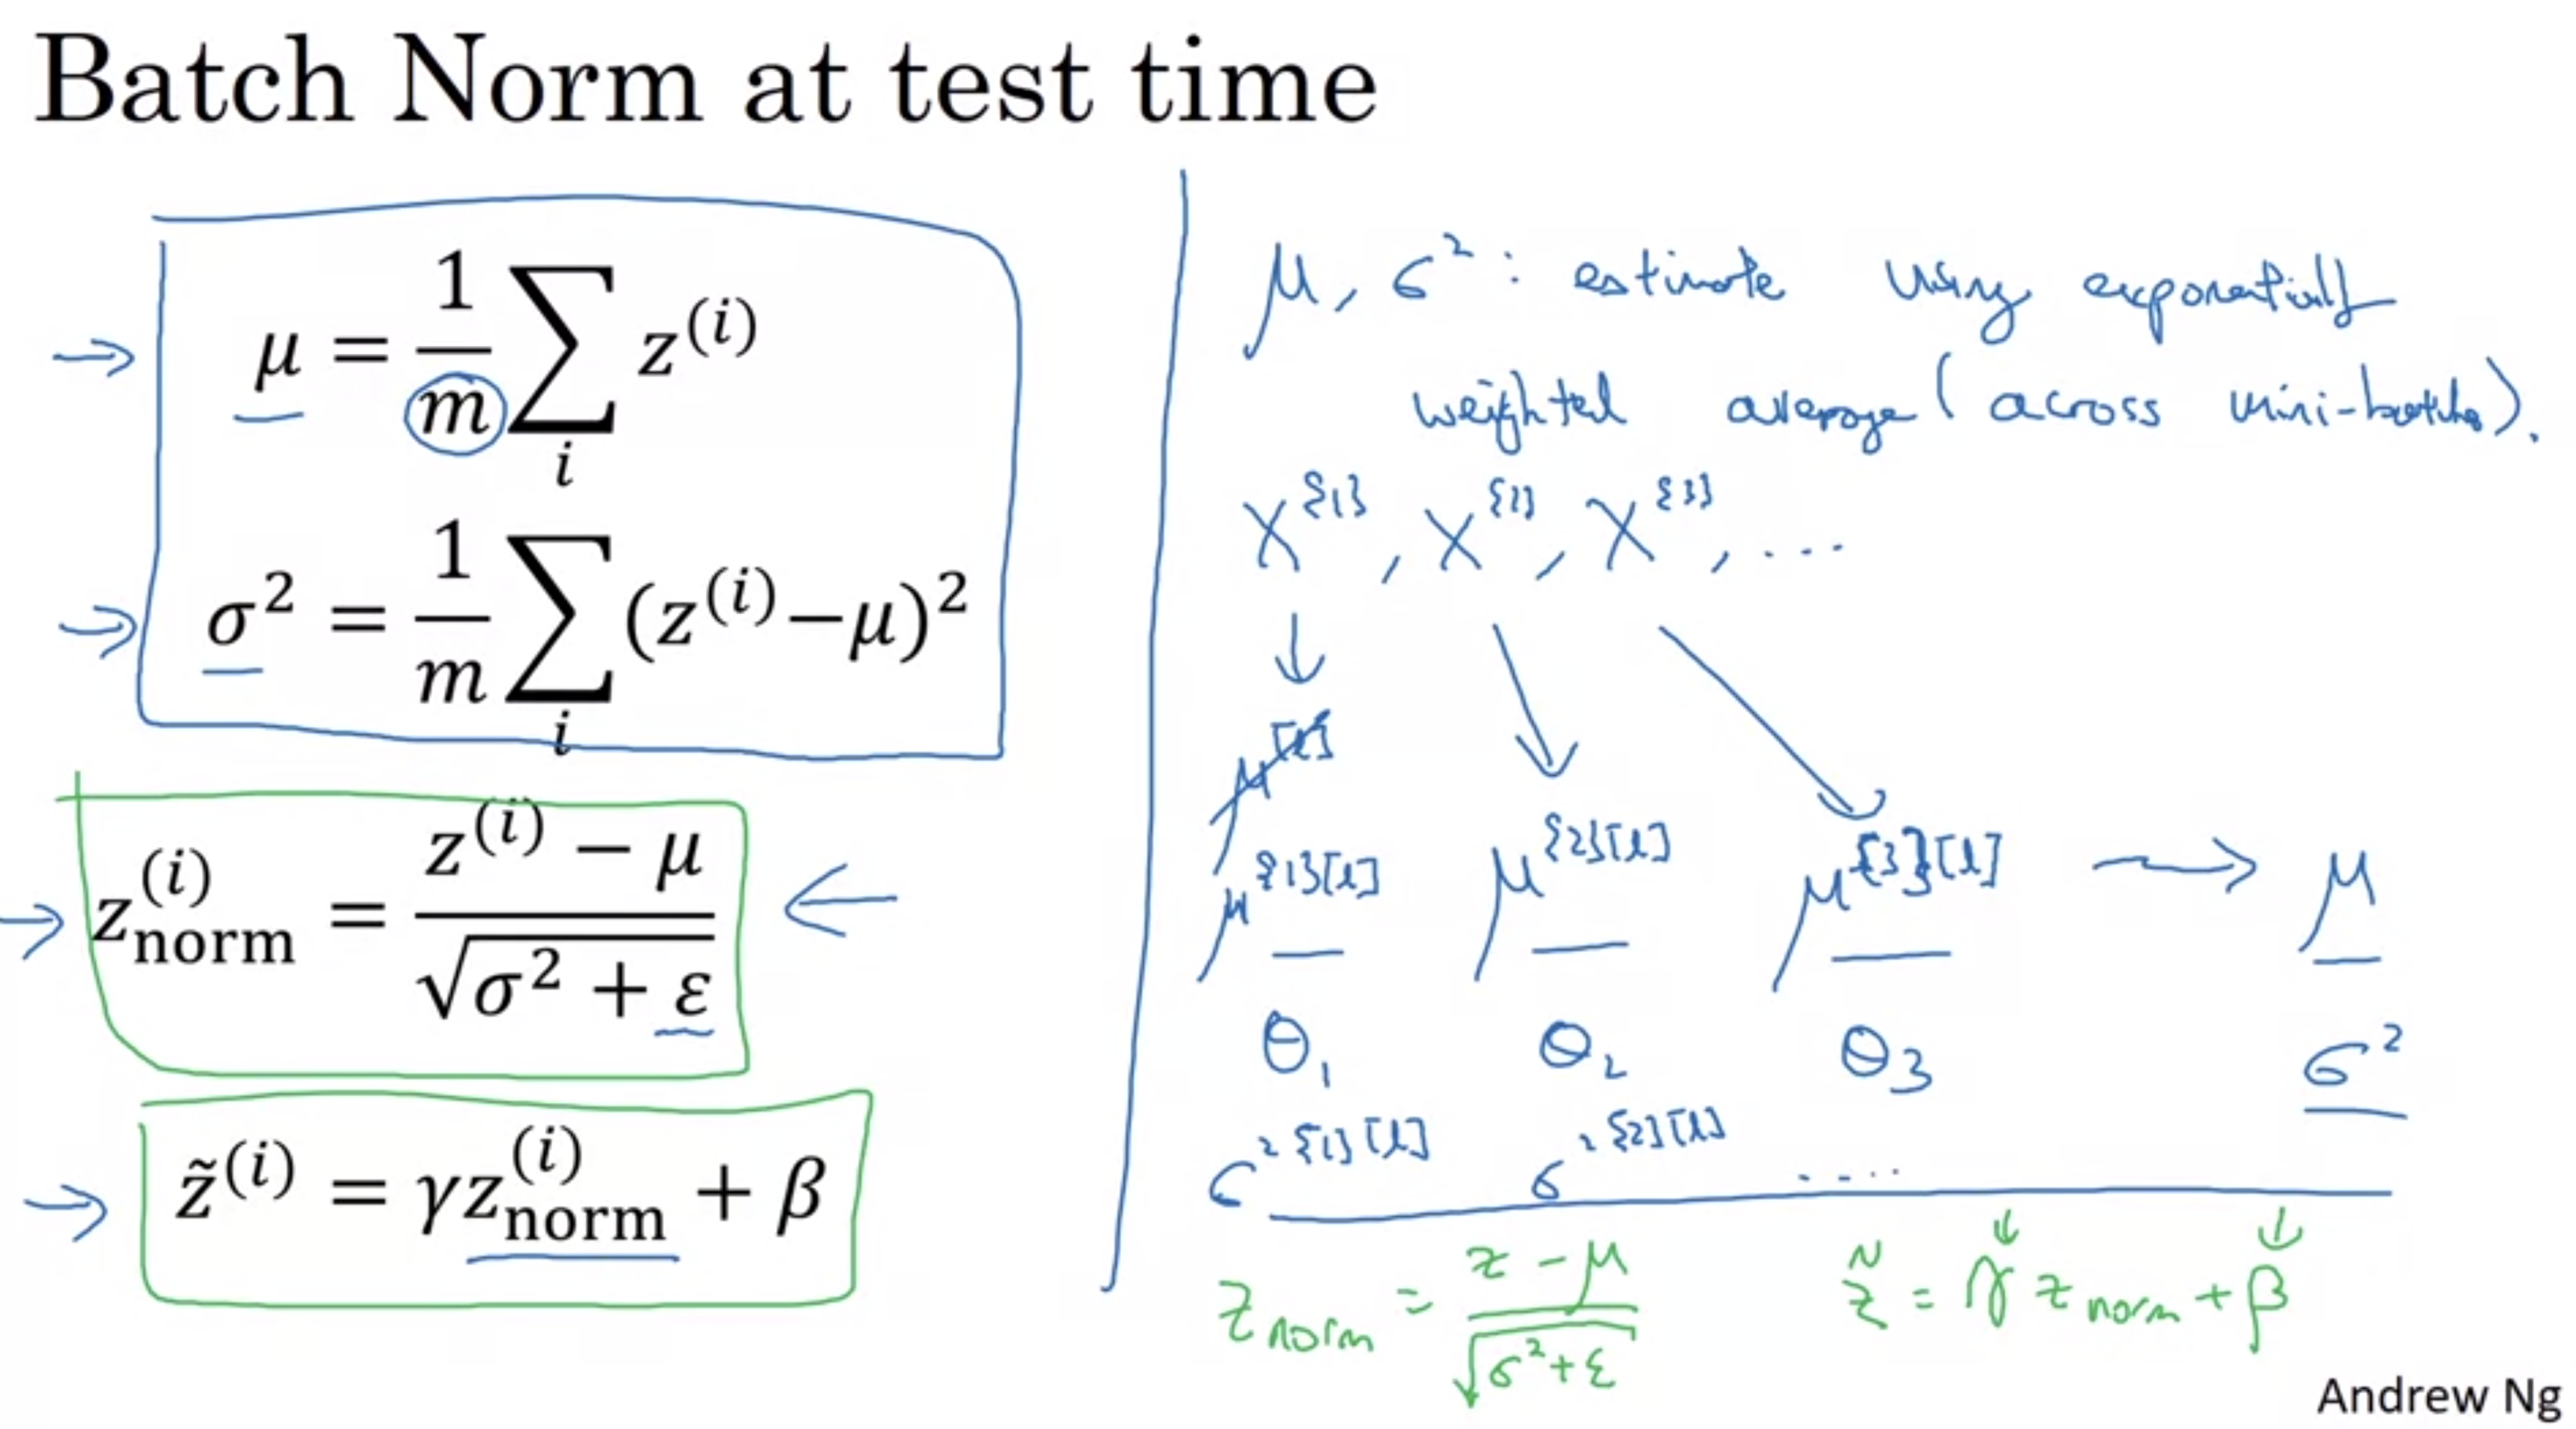 Batch Norm at test time
μ = 1/m ∑_i z^(i)
σ² = 1/m ∑_i (z^(i)−μ)²
z_norm^(i) = (z^(i) − μ) / √(σ² + ε)
z̃^(i) = γz_norm^(i) + β
μ, σ² : estimate using exponentially
weighted average (across mini-batches).
X^{1}, X^{2}, X^{3}, ....
μ^[l]
μ^{1}[l] μ^{2}[l] μ^{3}[l] → μ
θ₁ θ₂ θ₃ σ²
σ²^{1}[l] σ²^{2}[l] ....
z_norm = (z − μ) / √(σ² + ε) z̃ = γ z_norm + β
Andrew Ng